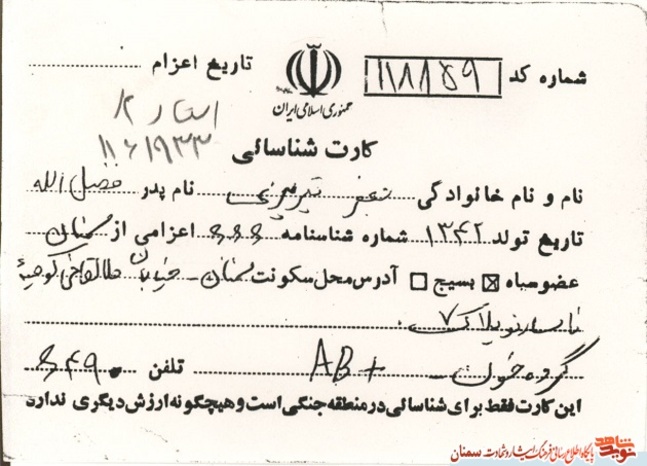 شماره کد ۱۱۸۸۴۹
جمهوری اسلامی ایران
تاریخ اعزام
کارت شناسائی
نام و نام خانوادگی نام پدر فضل الله
تاریخ تولد ۱۳۴۲ شماره شناسنامه اعزامی از سمنان
عضو سپاه ☒ بسیج ☐ آدرس محل سکونت سمنان - خیابان طالقانی کوچه
پلاک ۷
گروه خون AB+ تلفن
این کارت فقط برای شناسائی در منطقه جنگی است و هیچگونه ارزش دیگری ندارد
نوید شاهد
پایگاه اطلاع رسانی فرهنگ ایثار و شهادت سمنان